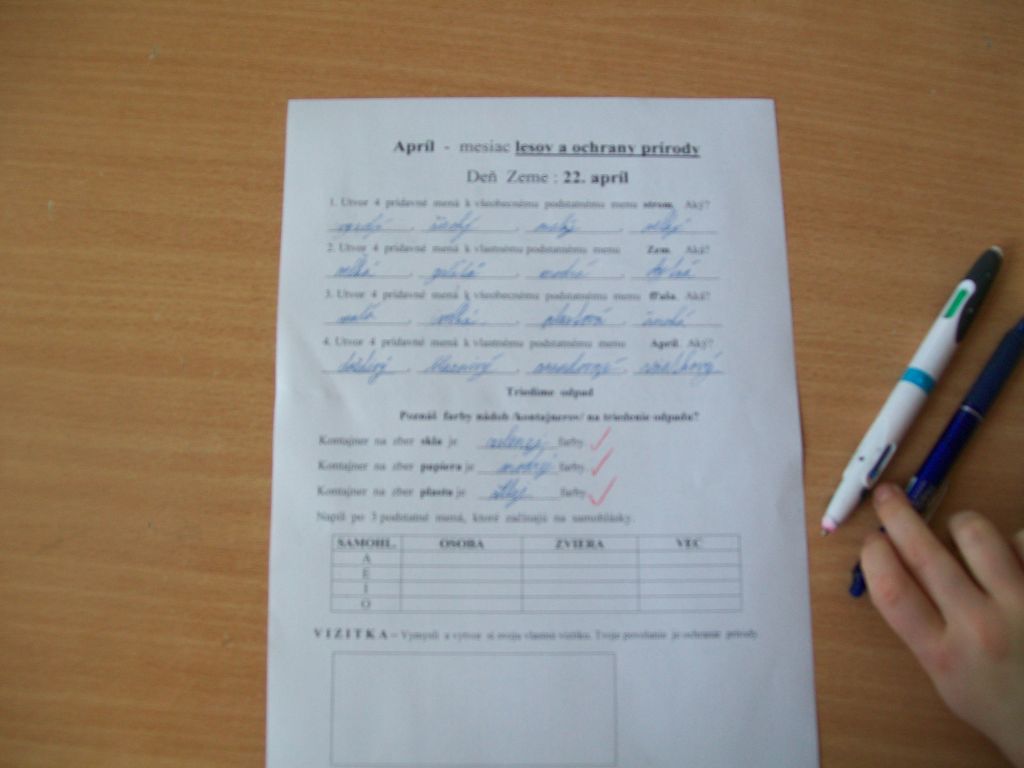 Apríl - mesiac lesov a ochrany prírody
Deň Zeme : 22. apríl
1. Utvor 4 prídavné mená k všeobecnému podstatnému menu strom. Aký?
široký malý veľký
2. Utvor 4 prídavné mená k vlastnému podstatnému menu Zem. Aká?
veľká guľatá modrá
3. Utvor 4 prídavné mená k všeobecnému podstatnému menu fľaša. Aká?
malá veľká plastová
4. Utvor 4 prídavné mená k vlastnému podstatnému menu Apríl. Aký?
daždivý
Triedime odpad
Poznáš farby nádob /kontajnerov/ na triedenie odpadu?
Kontajner na zber skla je zelenej farby.
Kontajner na zber papiera je modrej farby.
Kontajner na zber plastu je žltej farby.
Napíš po 3 podstatné mená, ktoré začínajú na samohlásky:
SAMOHL. OSOBA ZVIERA VEC
A
E
I
O
VIZITKA – Vymysli a vytvor si svoju vlastnú vizitku. Tvoje povolanie je ochranár prírody.